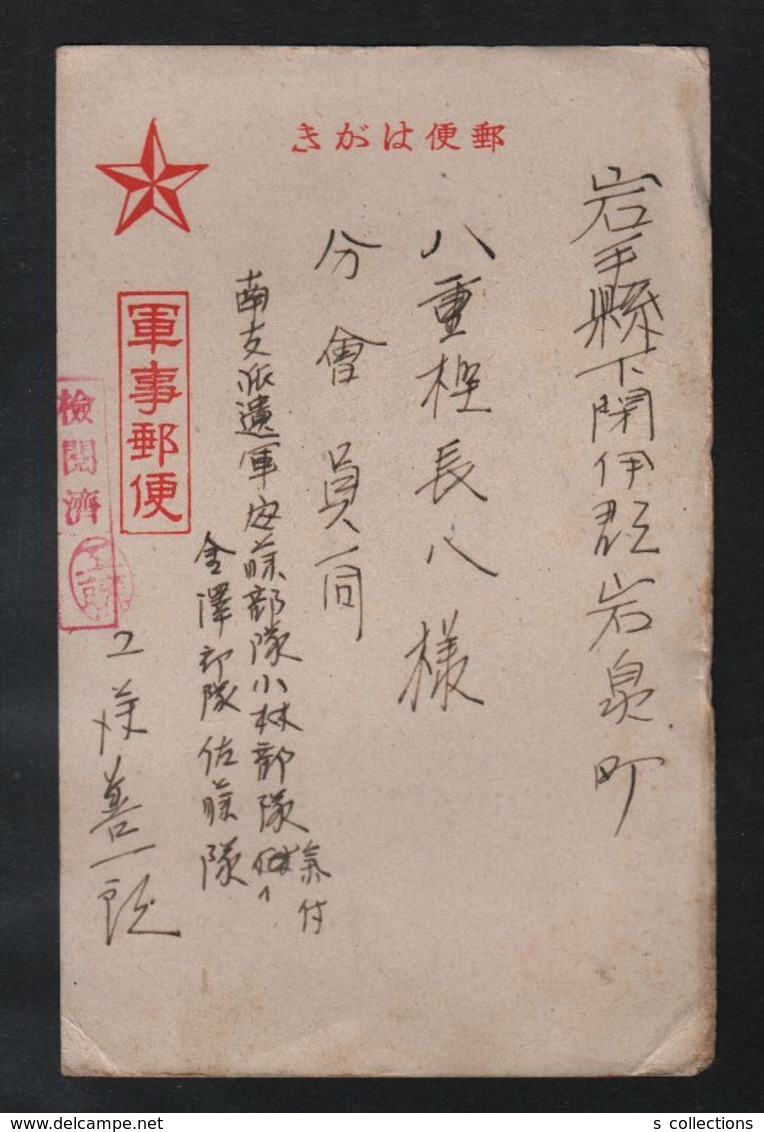 郵便はがき
岩手縣下閉伊郡岩泉町
八重樫長八様
分會員一同
南支派遣軍安藤部隊小林部隊氣付
金澤部隊佐藤隊
工藤善一郎
軍事郵便
檢閲濟
工藤
s collections